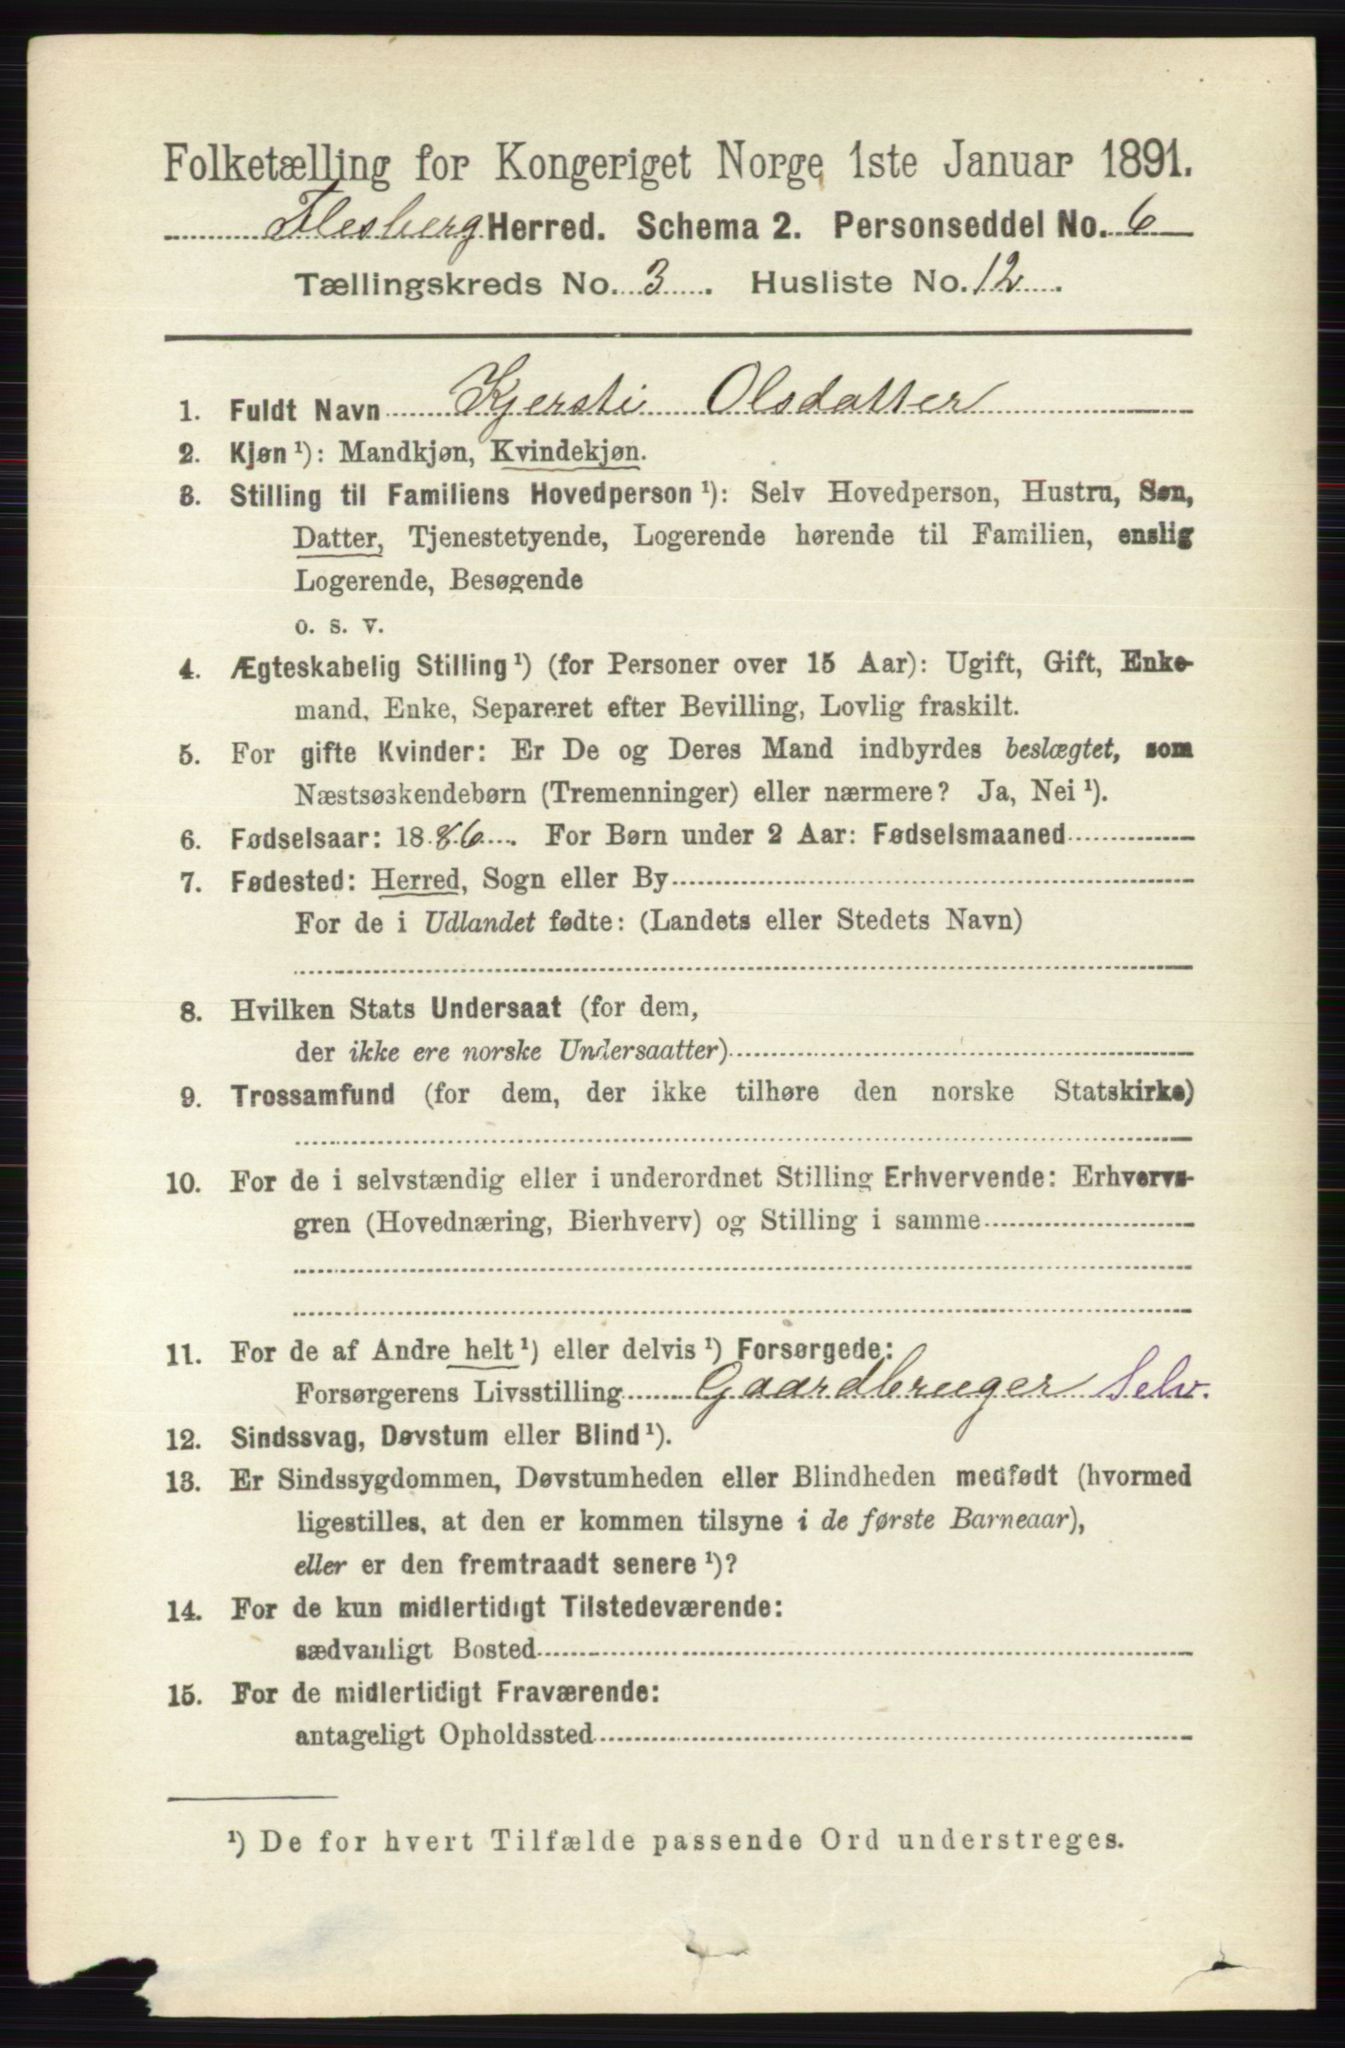 Folketælling for Kongeriget Norge 1ste Januar 1891.
Flesberg Herred. Schema 2. Personseddel No. 6
Tællingskreds No. 3. Husliste No. 12.
1. Fuldt Navn Kjersti Olsdatter
2. Kjøn ¹): Mandkjøn, Kvindekjøn.
3. Stilling til Familiens Hovedperson ¹): Selv Hovedperson, Hustru, Søn,
Datter, Tjenestetyende, Logerende hørende til Familien, enslig
Logerende, Besøgende
o. s. v.
4. Ægteskabelig Stilling ¹) (for Personer over 15 Aar): Ugift, Gift, Enke-
mand, Enke, Separeret efter Bevilling, Lovlig fraskilt.
5. For gifte Kvinder: Er De og Deres Mand indbyrdes beslægtet, som
Næstsøskendebørn (Tremenninger) eller nærmere? Ja, Nei ¹).
6. Fødselsaar: 1886. For Børn under 2 Aar: Fødselsmaaned
7. Fødested: Herred, Sogn eller By
For de i Udlandet fødte: (Landets eller Stedets Navn)
8. Hvilken Stats Undersaat (for dem,
der ikke ere norske Undersaatter)
9. Trossamfund (for dem, der ikke tilhøre den norske Statskirke)
10. For de i selvstændig eller i underordnet Stilling Erhvervende: Erhvervs-
gren (Hovednæring, Bierhverv) og Stilling i samme
11. For de af Andre helt ¹) eller delvis ¹) Forsørgede:
Forsørgerens Livsstilling Gaardbruger Selv.
12. Sindssvag, Døvstum eller Blind ¹).
13. Er Sindssygdommen, Døvstumheden eller Blindheden medfødt (hvormed
ligestilles, at den er kommen tilsyne i de første Barneaar),
eller er den fremtraadt senere ¹)?
14. For de kun midlertidigt Tilstedeværende:
sædvanligt Bosted
15. For de midlertidigt Fraværende:
antageligt Opholdssted
¹) De for hvert Tilfælde passende Ord understreges.